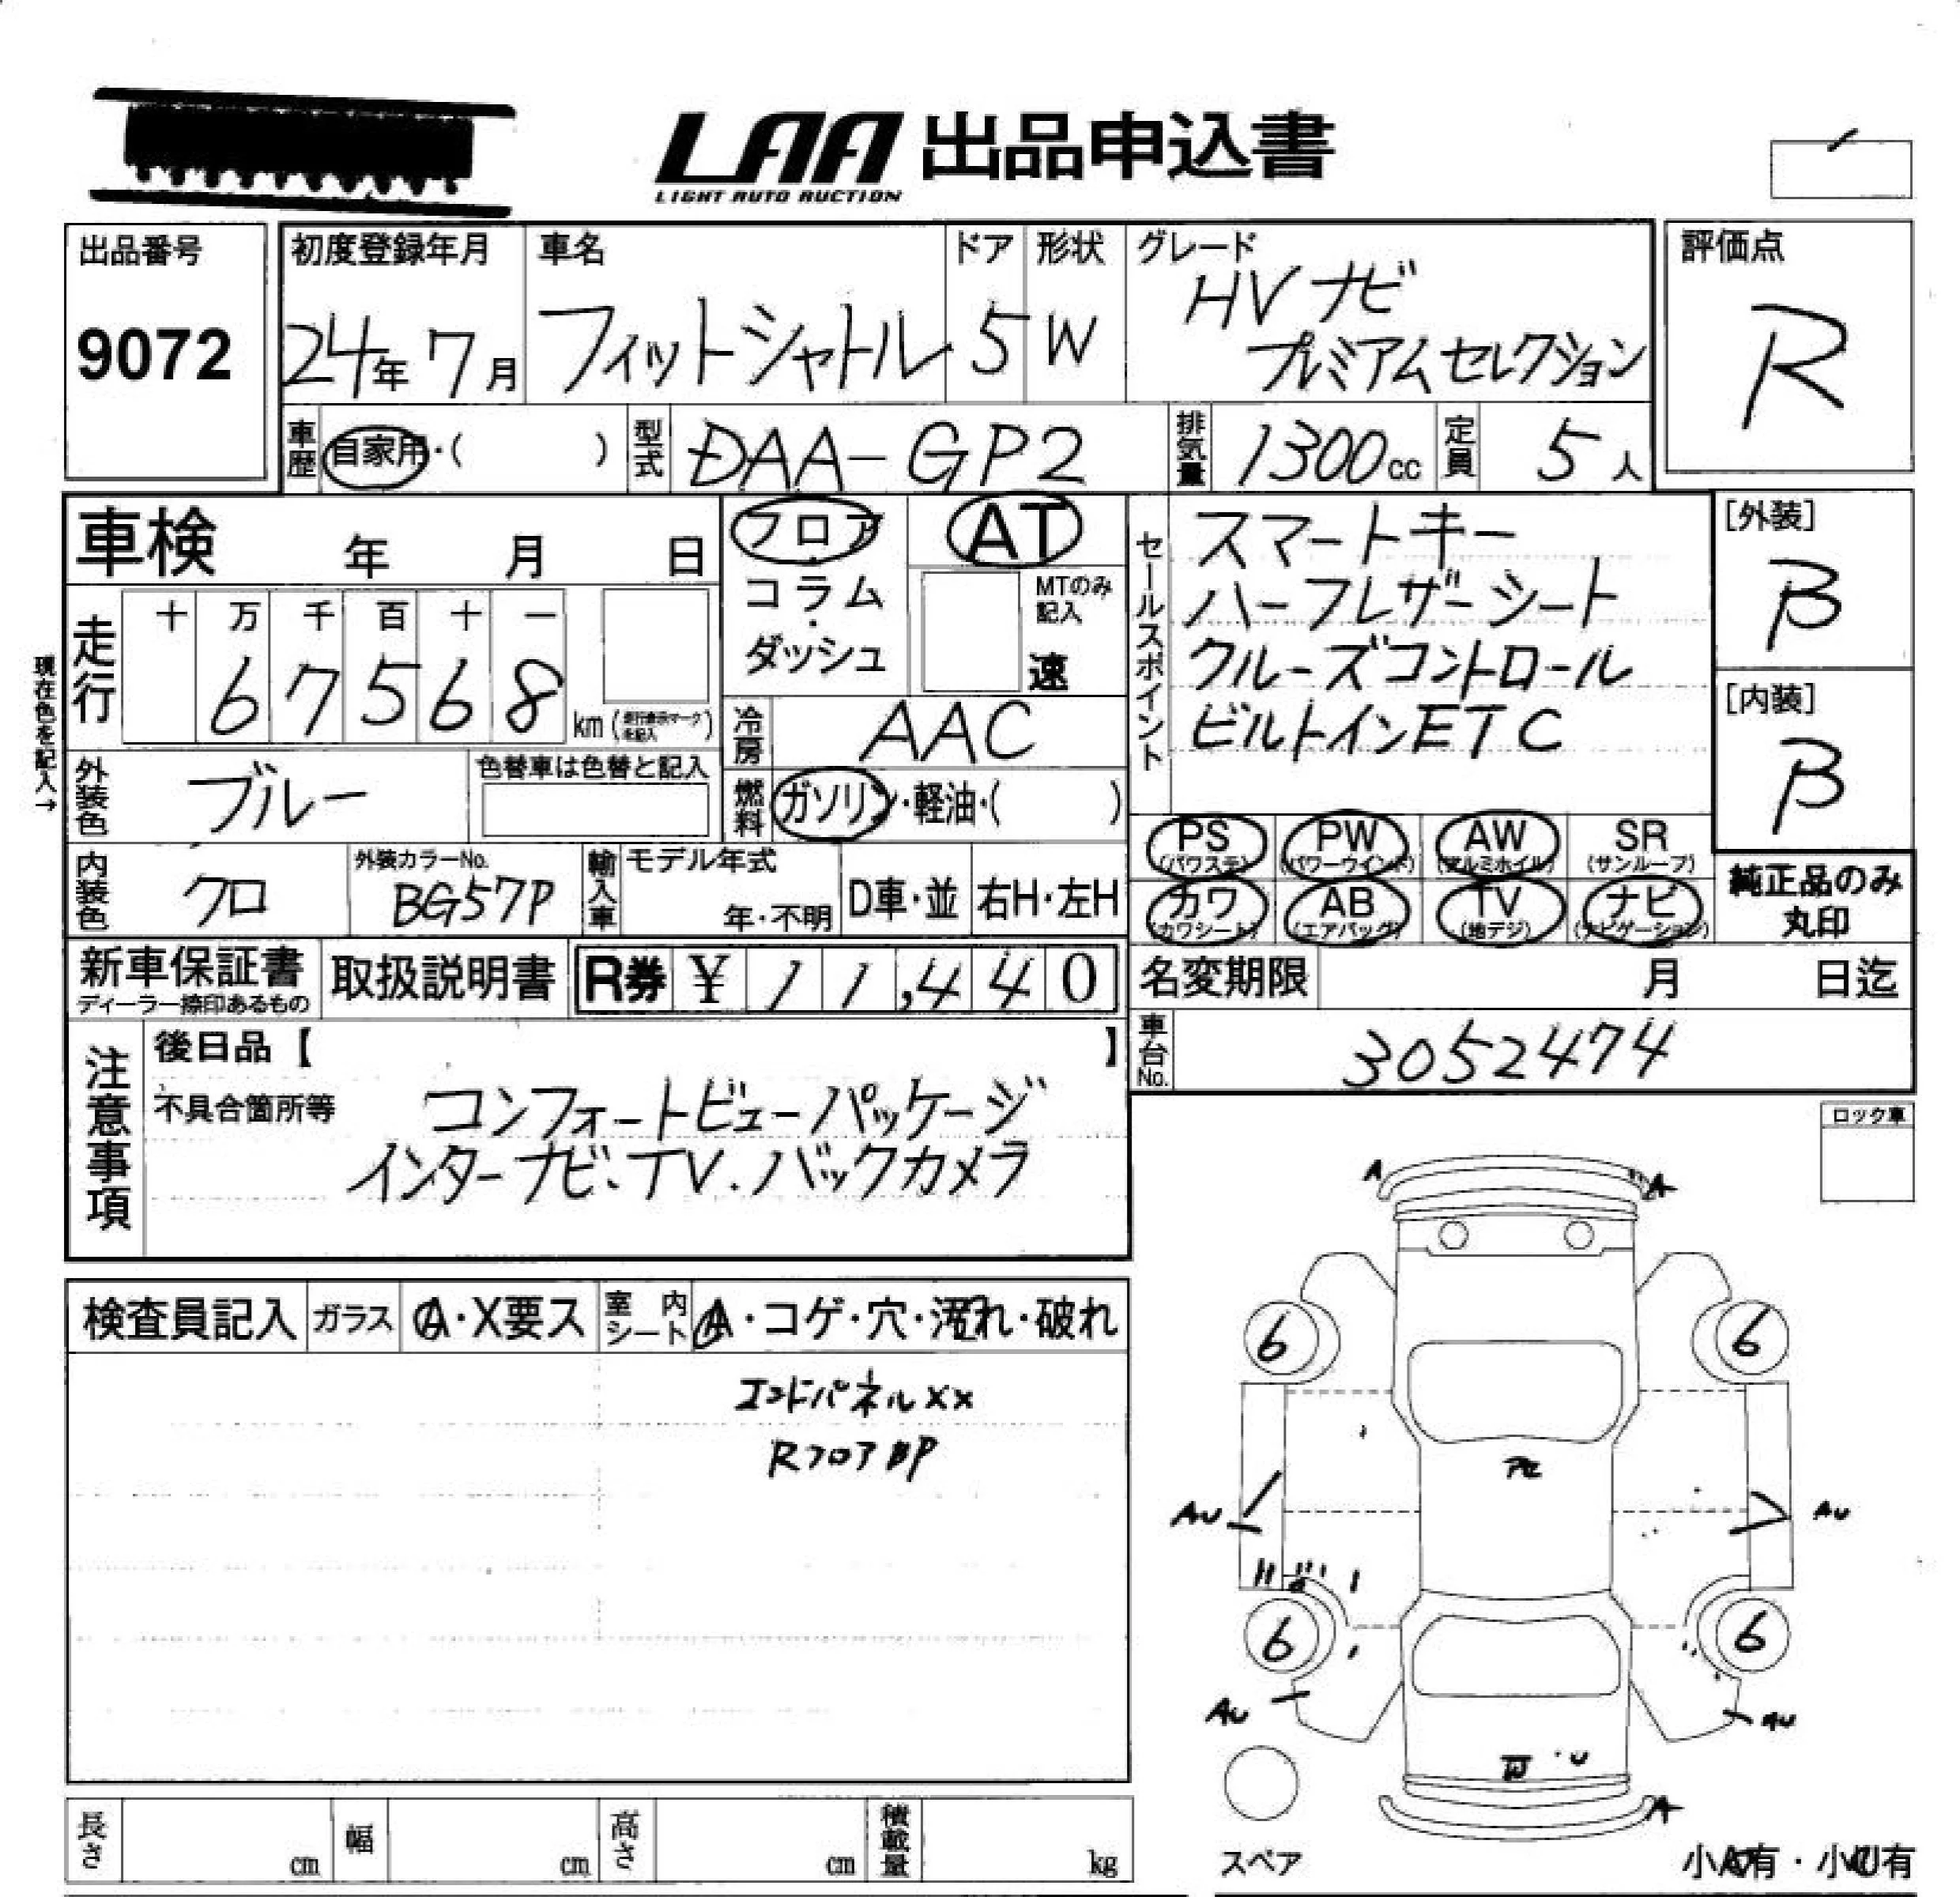 LAA 出品申込書
LIGHT AUTO AUCTION
出品番号
9072
初度登録年月
24年 7月
車名
フィットシャトル
ドア
5
形状
W
グレード
HV ナビ
プレミアムセレクション
評価点
R
車歴
自家用・( )
型式
DAA-GP2
排気量
1300cc
定員
5人
車検 年 月 日
フロア・コラム・ダッシュ
AT
MTのみ記入
速
セールスポイント
スマートキー
ハーフレザーシート
クルーズコントロール
ビルトインETC
[外装]
B
[内装]
B
現在色を記入→
走行
十 万 千 百 十 一
6 7 5 6 8
km
冷房
AAC
外装色
ブルー
色替車は色替と記入
燃料
ガソリン・軽油・( )
内装色
クロ
外装カラーNo.
BG57P
輸入車
モデル年式
年・不明
D車・並
右H・左H
PS (パワステ)
PW (パワーウインド)
AW (アルミホイル)
SR (サンルーフ)
カワ (カワシート)
AB (エアバッグ)
TV (地デジ)
ナビ (ナビゲーション)
純正品のみ
丸印
新車保証書
ディーラー捺印あるもの
取扱説明書
R券 ¥11,440
名変期限 月 日迄
車台No.
3052474
注意事項
後日品【 】
不具合箇所等
コンフォートビューパッケージ
インターナビ、TV、バックカメラ
ロック車
検査員記入
ガラス
A・X要ス
室内シート
A・コゲ・穴・濡れ・破れ
エンドパネルXX
Rフロア BP
A
A
6
6
AU
AU
6
6
AU
AU
W
U
A
スペア
小A有・小U有
長さ cm
幅 cm
高さ cm
積載量 kg